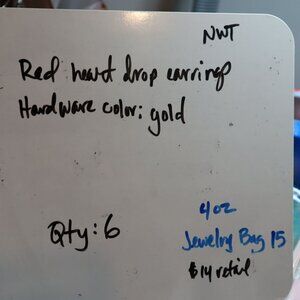 NWT
Red heart drop earrings
Hardware color: gold
Qty: 6
4oz
Jewelry Bag 15
$14 retail